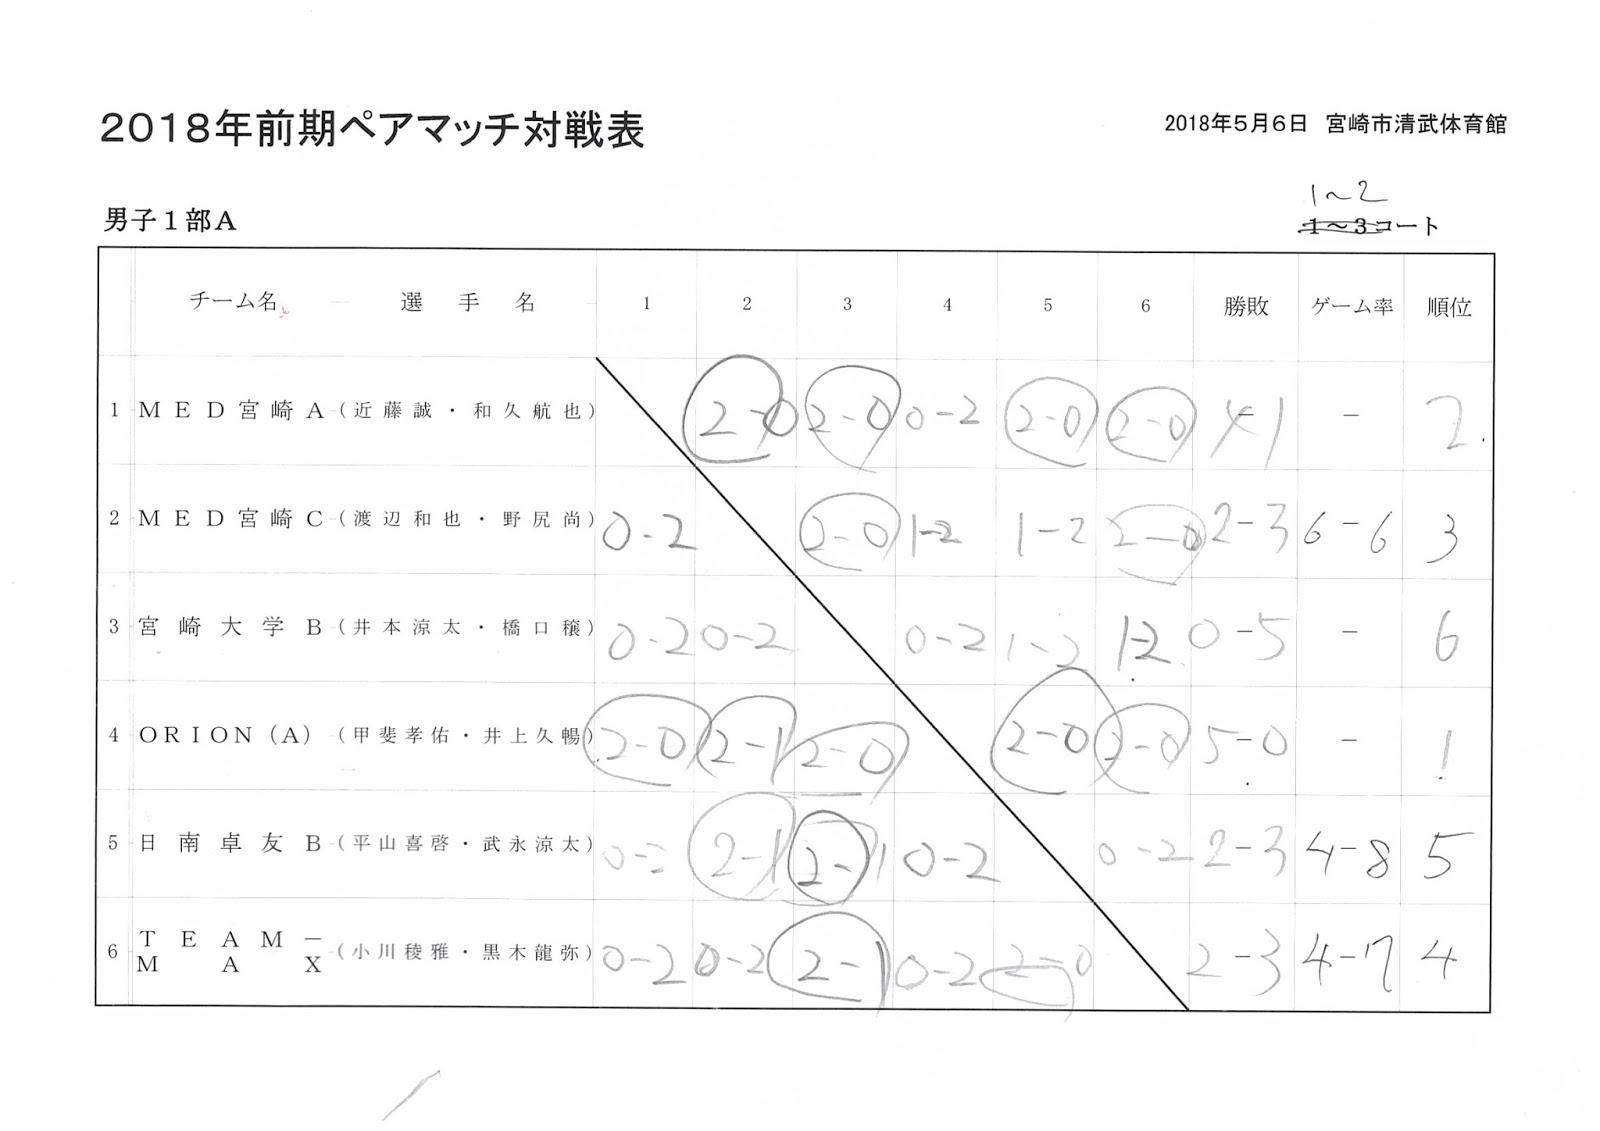 2018年前期ペアマッチ対戦表
2018年5月6日 宮崎市清武体育館
男子1部A
1~2
1~3コート
チーム名 選手名 1 2 3 4 5 6 勝敗 ゲーム率 順位
1 MED宮崎A (近藤誠・和久航也) 2-0 2-0 0-2 2-0 2-0 4-1 - 2
2 MED宮崎C (渡辺和也・野尻尚) 0-2 2-0 1-2 1-2 2-0 2-3 6-6 3
3 宮崎大学B (井本涼太・橋口穣) 0-2 0-2 0-2 1-2 1-2 0-5 - 6
4 ORION(A) (甲斐孝佑・井上久暢) 2-0 2-1 2-0 2-0 2-0 5-0 - 1
5 日南卓友B (平山喜啓・武永涼太) 0-2 2-1 2-1 0-2 0-2 2-3 4-8 5
6 TEAM-MAX (小川稜雅・黒木龍弥) 0-2 0-2 2-1 0-2 2-0 2-3 4-7 4